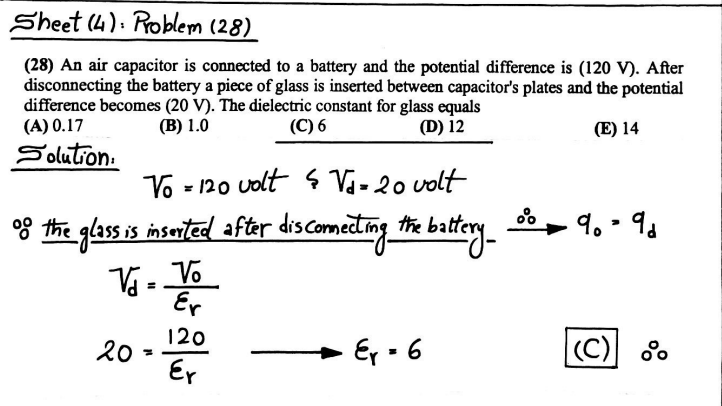 Sheet (4): Problem (28)
(28) An air capacitor is connected to a battery and the potential difference is (120 V). After
disconnecting the battery a piece of glass is inserted between capacitor's plates and the potential
difference becomes (20 V). The dielectric constant for glass equals
(A) 0.17 (B) 1.0 (C) 6 (D) 12 (E) 14
Solution:
V₀ = 120 volt & V_d = 20 volt
∵ the glass is inserted after disconnecting the battery ∴ → q₀ = q_d
V_d = V₀ / εr
20 = 120 / εr → εr = 6 (C) ∴